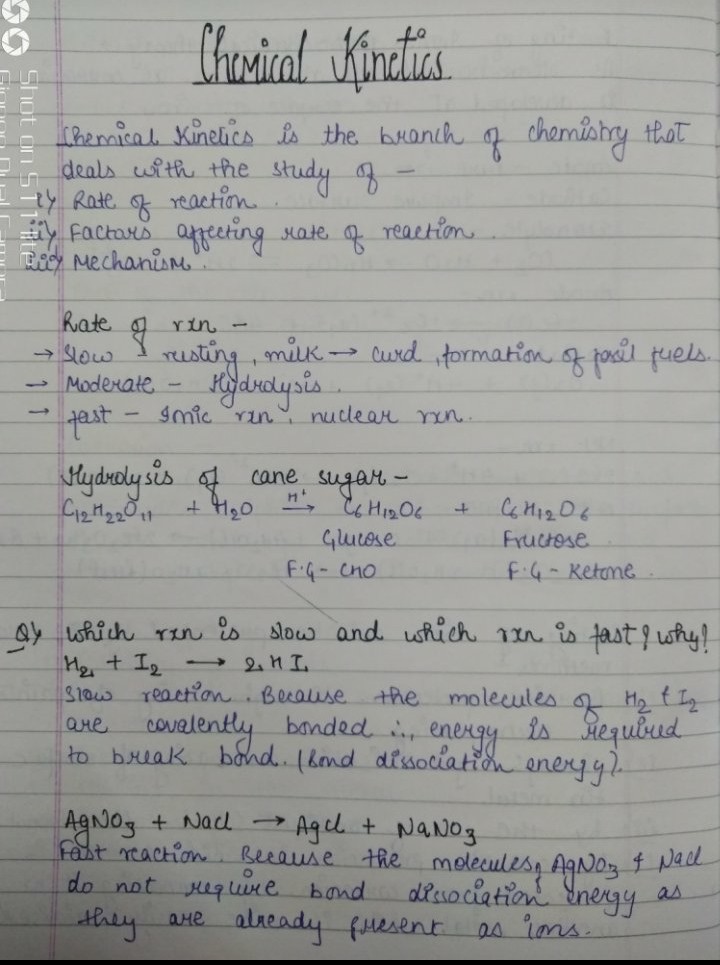 Chemical Kinetics
Chemical Kinetics is the branch of chemistry that
deals with the study of -
i) Rate of reaction.
ii) Factors affecting rate of reaction.
iii) Mechanism.
Rate of rxn -
→ Slow - rusting, milk → curd, formation of fossil fuels.
→ Moderate - Hydrolysis.
→ fast - Ionic rxn, nuclear rxn.
Hydrolysis of cane sugar -
C12H22O11 + H2O —H+→ C6H12O6 + C6H12O6
Glucose Fructose
F.G - CHO F.G - Ketone.
Q) Which rxn is slow and which rxn is fast? Why?
H2 + I2 → 2HI
Slow reaction. Because the molecules of H2 & I2
are covalently bonded ∴, energy is required
to break bond. (Bond dissociation energy).
AgNO3 + NaCl → AgCl + NaNO3
Fast reaction. Because the molecules of AgNO3 & NaCl
do not require bond dissociation energy as
they are already present as ions.
Shot on S11lite
Gionee Dual Camera